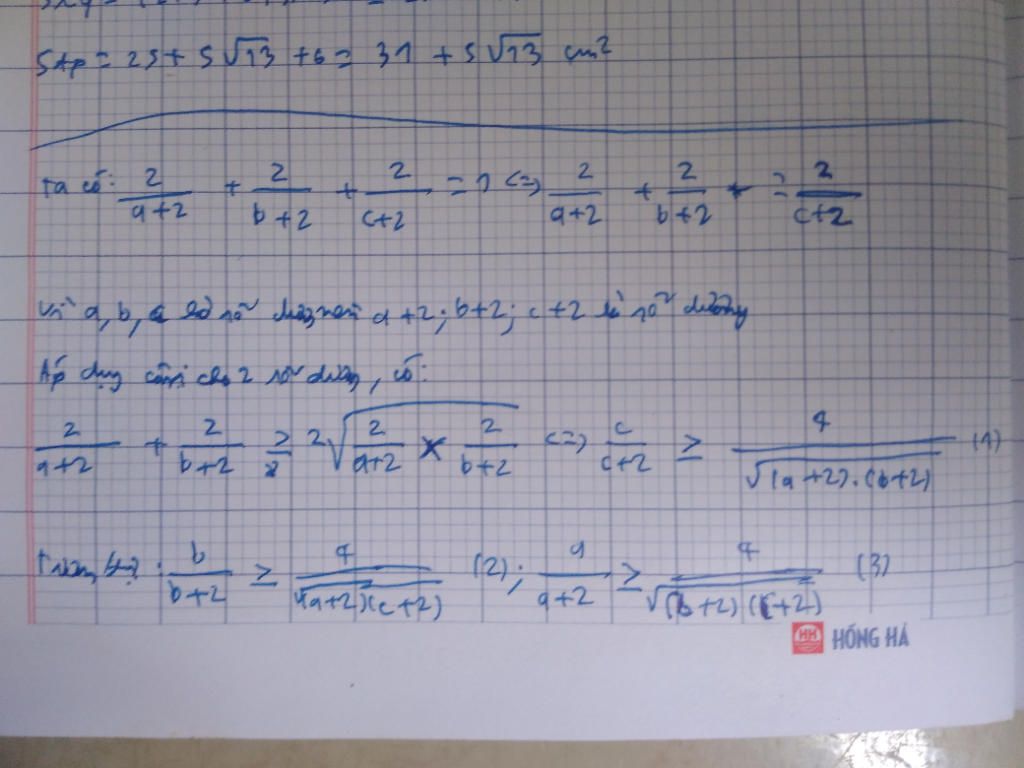 Stp = 25 + 5√13 + 6 = 31 + 5√13 cm²
Ta có: 2/(a+2) + 2/(b+2) + 2/(c+2) = 1 <=> 2/(a+2) + 2/(b+2) + = 2/(c+2)
Vì a, b, c là số dương nên a+2; b+2; c+2 là số dương
Áp dụng côsi cho 2 số dương, có:
2/(a+2) + 2/(b+2) ≥ 2√(2/(a+2) × 2/(b+2)) <=> c/(c+2) ≥ 4/√((a+2).(b+2)) (1)
Tương tự: b/(b+2) ≥ 4/√((a+2)(c+2)) (2); a/(a+2) ≥ 4/√((b+2)(c+2)) (3)
HH HỒNG HÀ